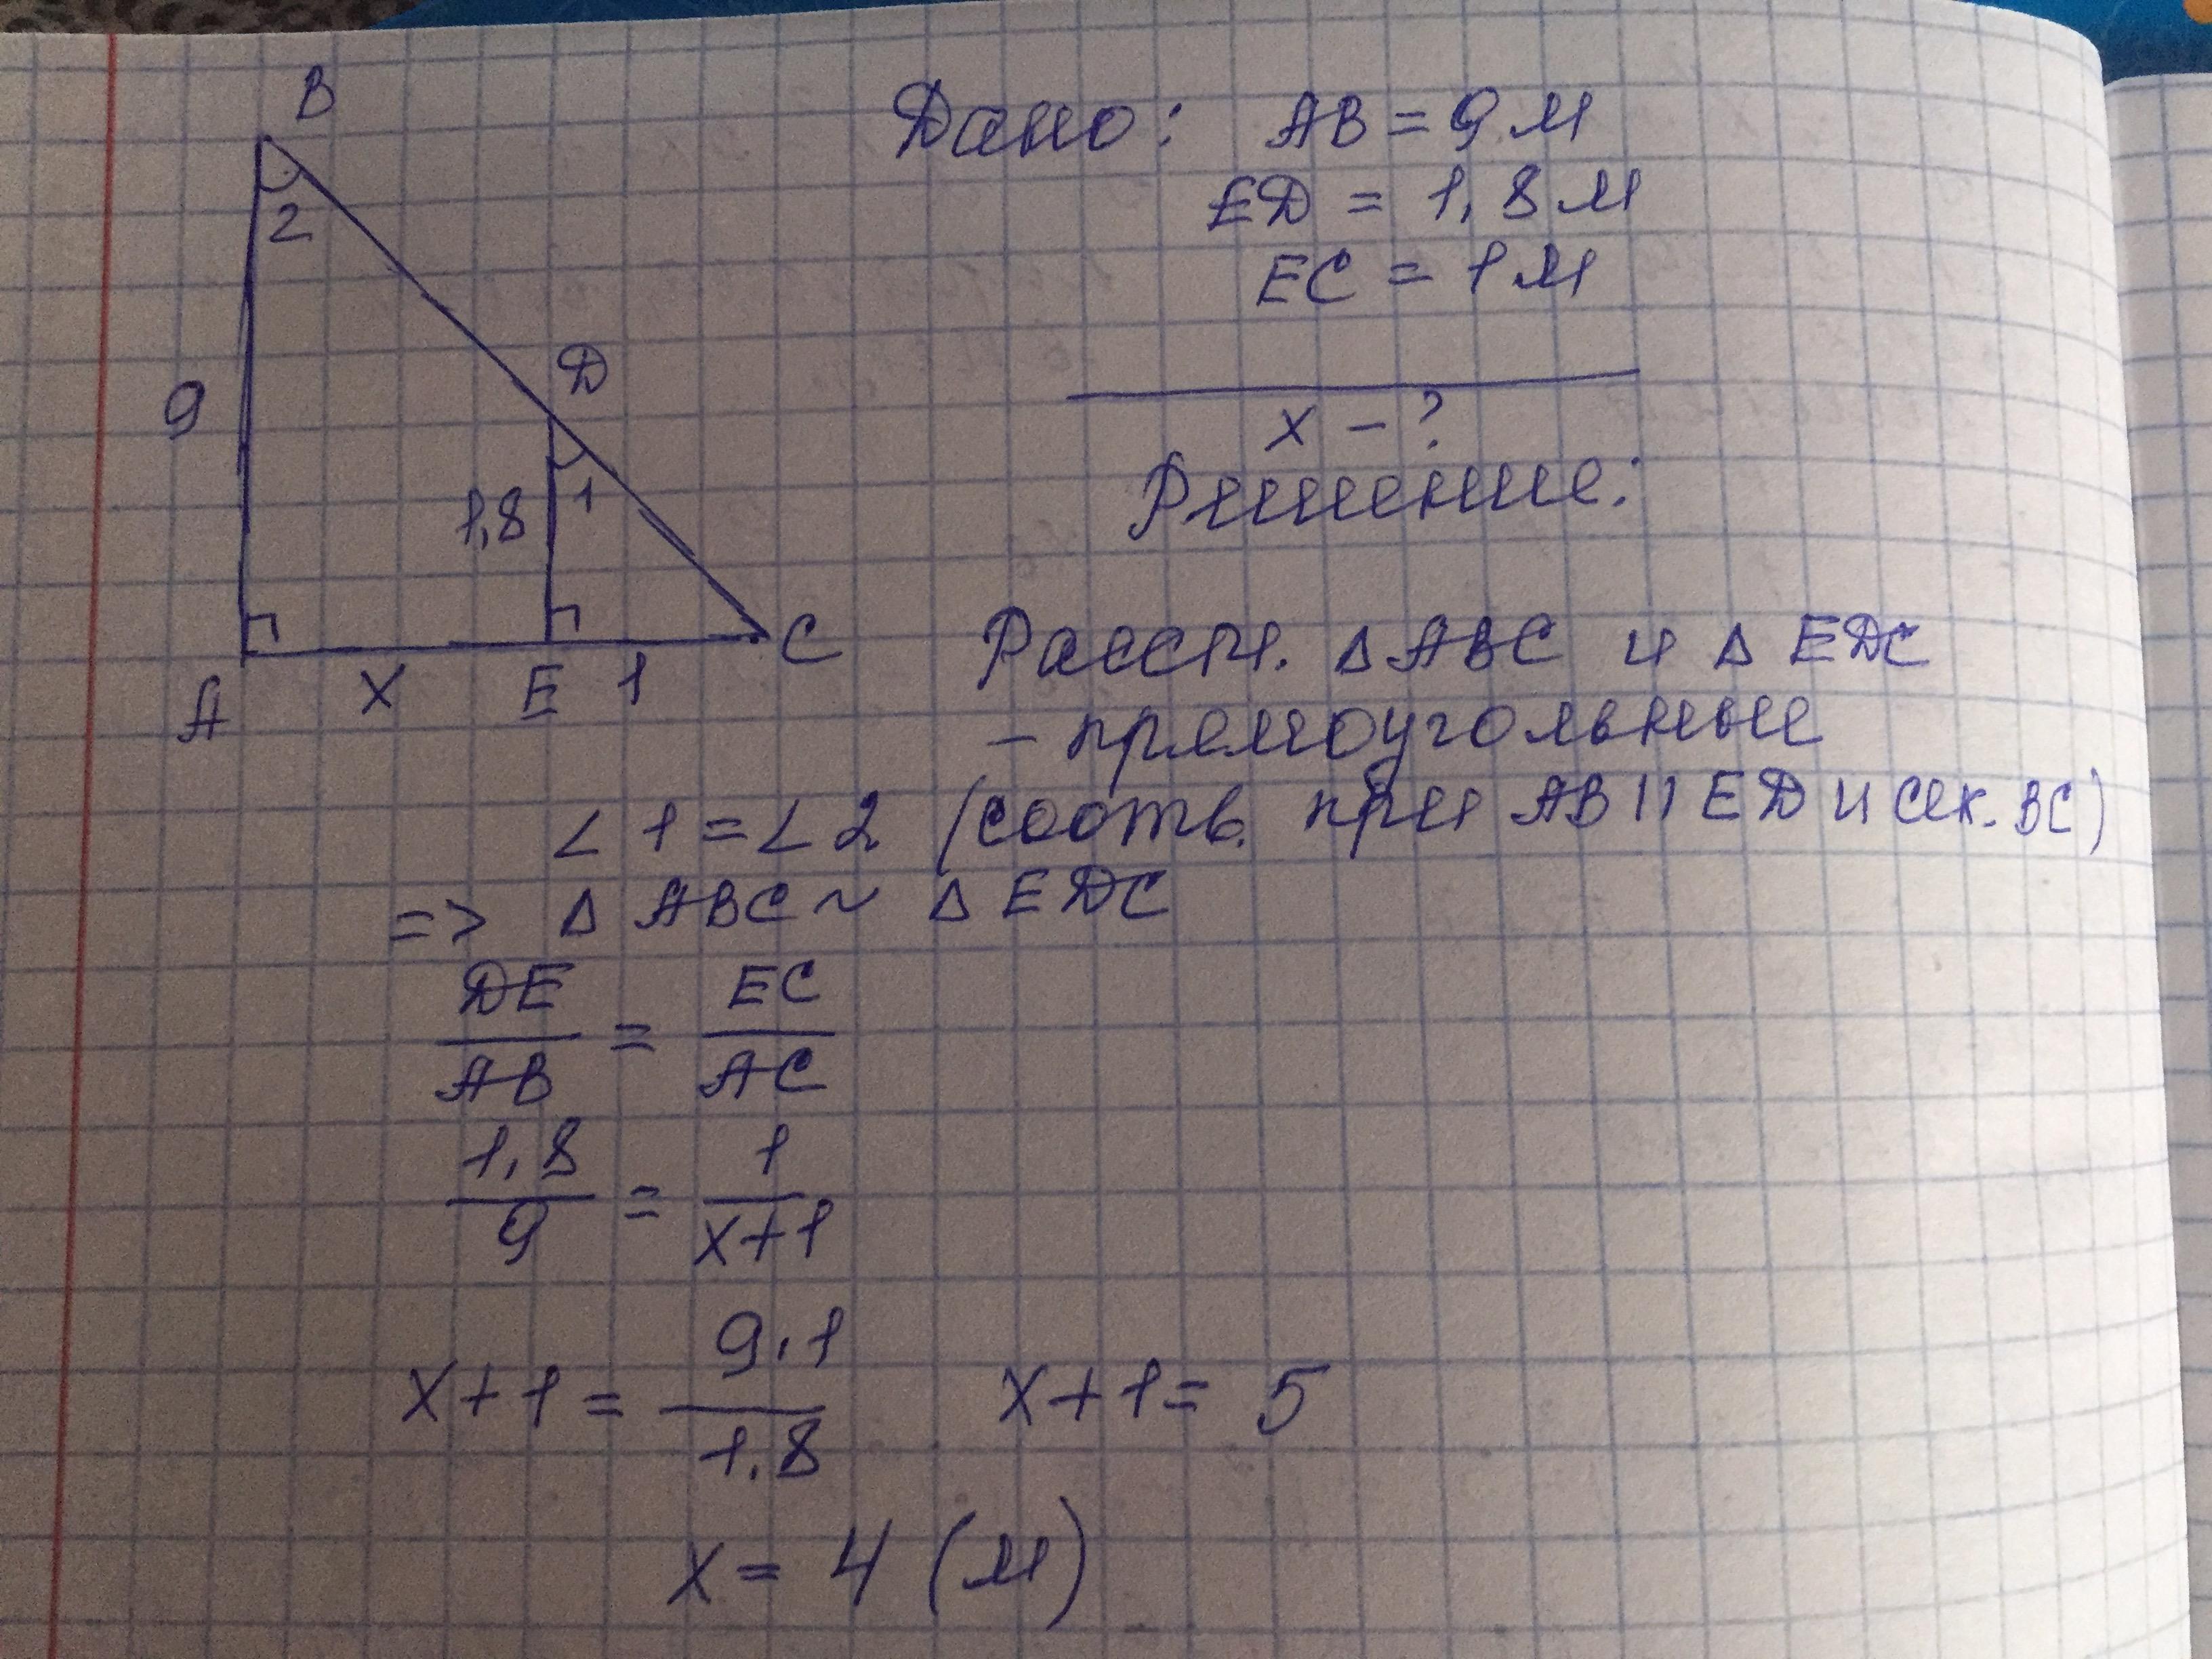 B
2
9
D
1,8
1
A
x
E
1
C
Дано: AB = 9 м
ED = 1,8 м
EC = 1 м
x - ?
Решение:
Рассм. △ ABC и △ EDC
- прямоугольные
∠ 1 = ∠ 2 (соотв. при AB || ED и сек. BC)
=> △ ABC ~ △ EDC
DE/AB = EC/AC
1,8/9 = 1/x+1
x+1 = 9·1/1,8 x+1 = 5
x = 4 (м)